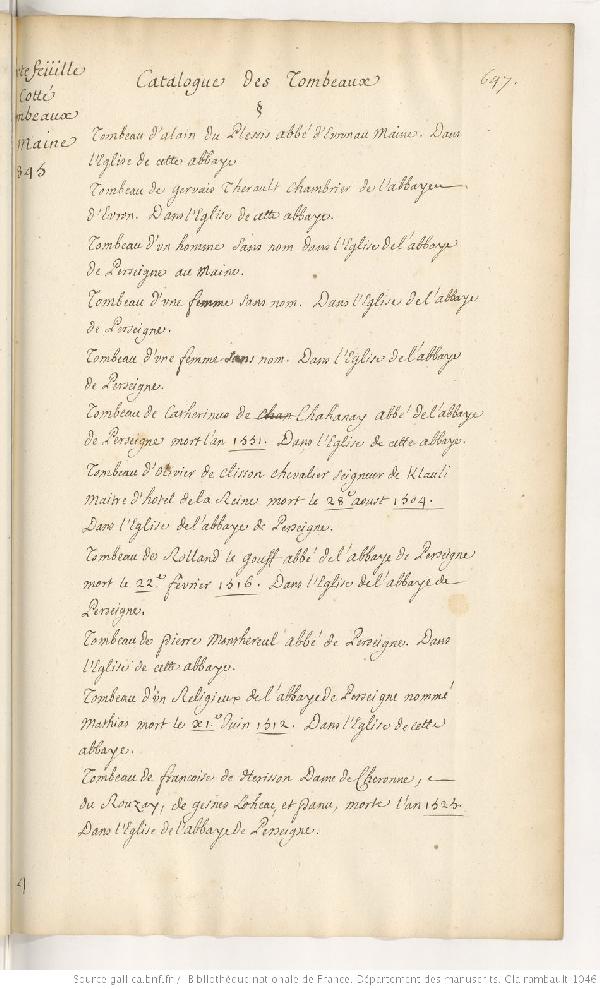 Catalogue des Tombeaux
697.
tefeüille
Cotté
mbeaux
Maine
§
Tombeau d'alain du Plessis abbé d'Evronau Maine. Dans
l'Eglise de cette abbaye
Tombeau de gervais Therault Chambrier de l'abbaye
d'Evron. Dans l'Eglise de cette abbaye.
Tombeau d'vn homme sans nom dans l'Eglise de l'abbaye
de Perseigne au Maine.
Tombeau d'vne femme sans nom. Dans l'Eglise de l'abbaye
de Perseigne.
Tombeau d'vne femme sans nom. Dans l'Eglise de l'abbaye
de Perseigne.
Tombeau de Catherinus de chan Chahanay abbé de l'abbaye
de Perseigne mort l'an 1551. Dans l'Eglise de cette abbaye.
Tombeau d'Olivier de Clisson chevalier seigneur de Klauli
Maitre d'hotel de la Reine mort le 28.e aoust 1504.
Dans l'Eglise de l'abbaye de Perseigne.
Tombeau de Rolland le gouff abbé de l'abbaye de Perseigne
mort le 22.e février 1516. Dans l'Eglise de l'abbaye de
Perseigne.
Tombeau de pierre Monshereul abbé de Perseigne. Dans
l'Eglise de cette abbaye.
Tombeau d'vn Religieux de l'abbaye de Perseigne nommé
Mathias mort le XI.e Juin 1512. Dans l'Eglise de cette
abbaye.
Tombeau de francoise de Herisson Dame de Cheronne,
du Rouzay, de gesnes Loheac, et panu, morte l'an 1525.
Dans l'Eglise de l'abbaye de Perseigne.
Source gallica.bnf.fr / Bibliothèque nationale de France. Département des manuscrits. Clairambault 1046